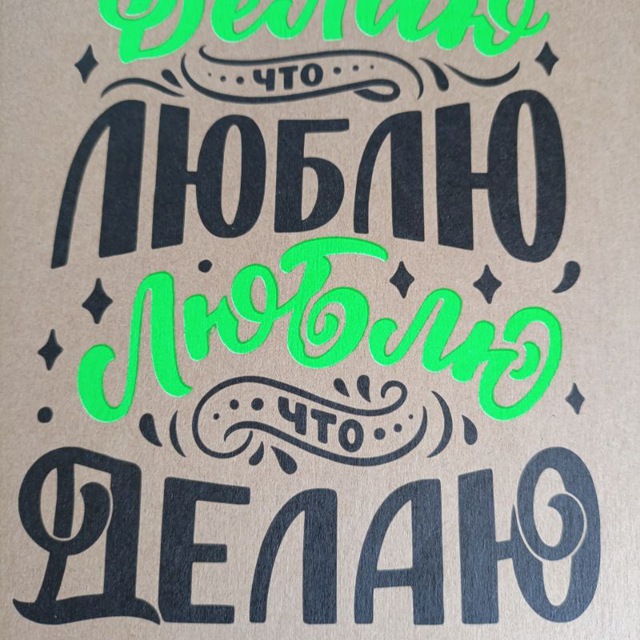 Делаю
что
ЛЮБЛЮ,
Люблю
что
ДЕЛАЮ